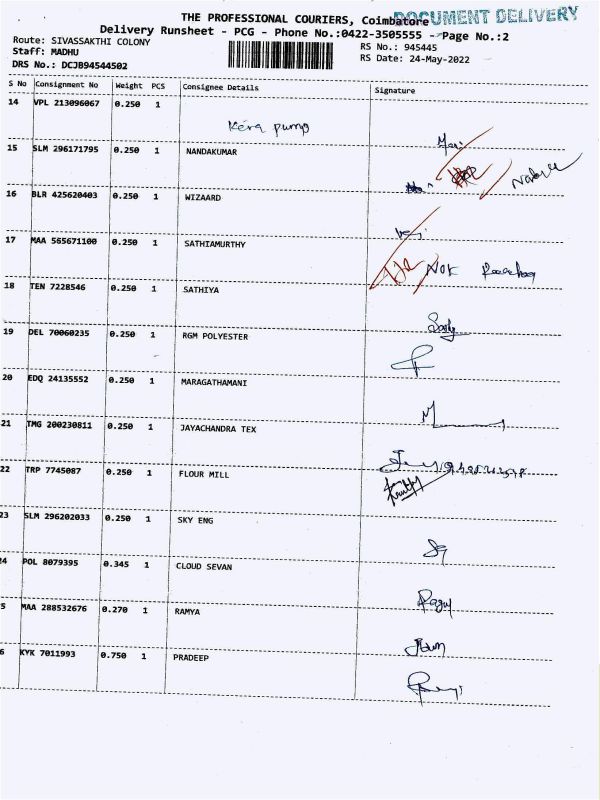 DOCUMENT DELIVERY
THE PROFESSIONAL COURIERS, Coimbatore
Delivery Runsheet - PCG - Phone No.:0422-3505555 - Page No.:2
Route: SIVASSAKTHI COLONY
RS No.: 945445
Staff: MADHU
RS Date: 24-May-2022
DRS No.: DCJB94544502
S No Consignment No Weight PCS Consignee Details Signature
14 VPL 213096067 0.250 1
Kera pump
15 SLM 296171795 0.250 1 NANDAKUMAR
16 BLR 425620403 0.250 1 WIZAARD
17 MAA 565671100 0.250 1 SATHIAMURTHY
NOK
18 TEN 7228546 0.250 1 SATHIYA
19 DEL 70060235 0.250 1 RGM POLYESTER
20 EDQ 24135552 0.250 1 MARAGATHAMANI
21 TMG 200230811 0.250 1 JAYACHANDRA TEX
22 TRP 7745087 0.250 1 FLOUR MILL
23 SLM 296202033 0.250 1 SKY ENG
24 POL 8079395 0.345 1 CLOUD SEVAN
Ragul
5 MAA 288532676 0.270 1 RAMYA
6 KYK 7011993 0.750 1 PRADEEP